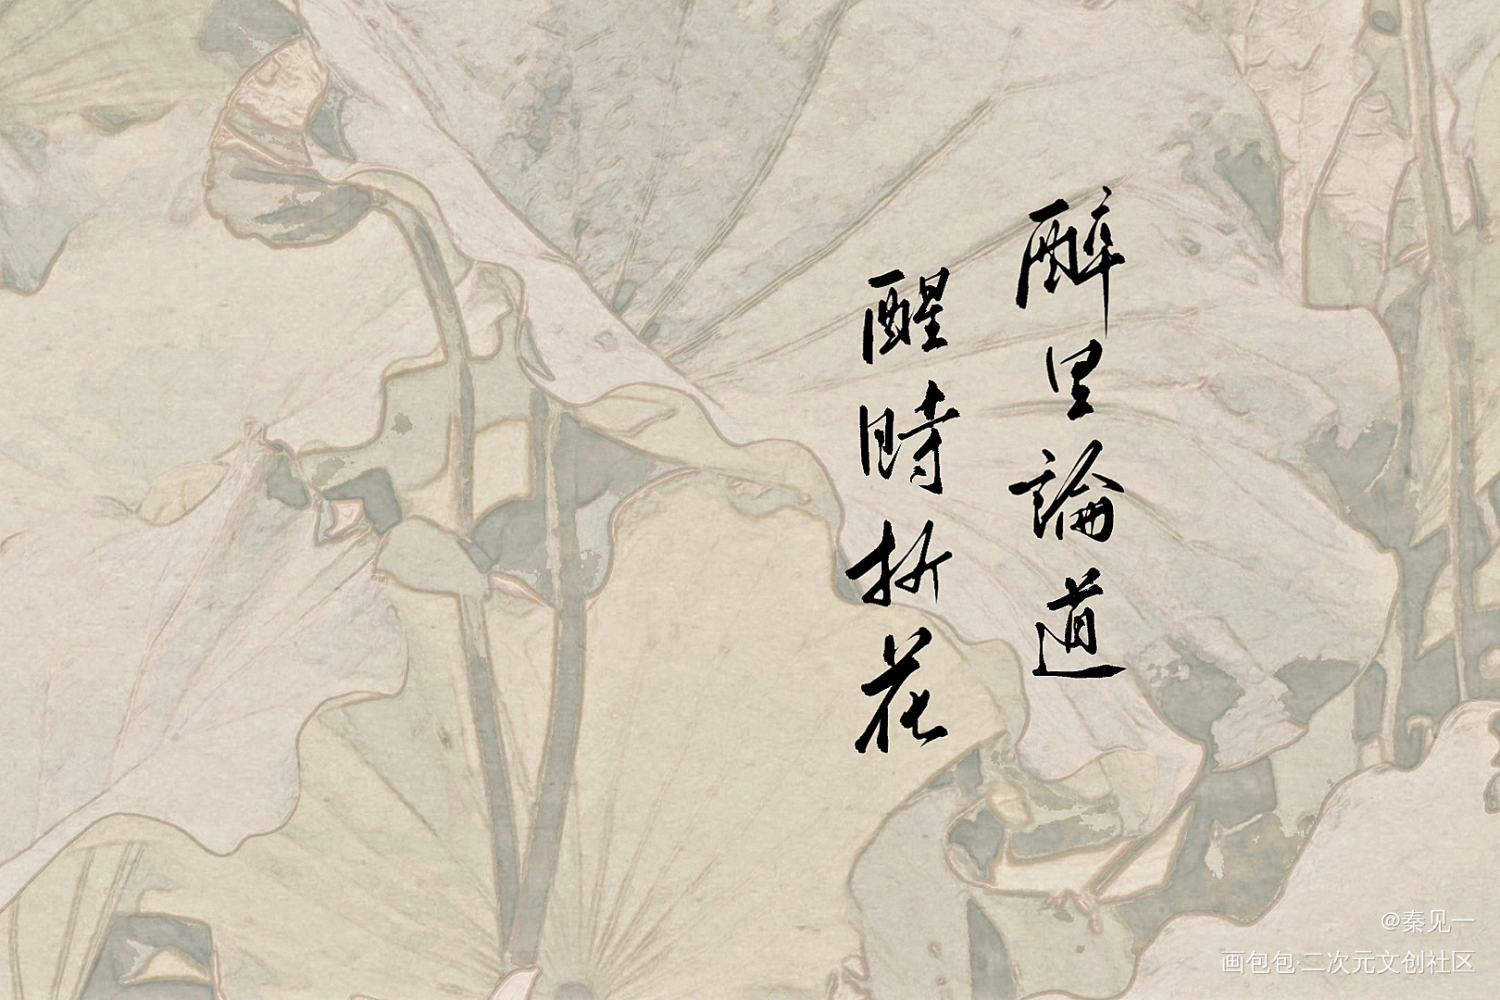 醉里論道
醒時折花
@秦见一
画包包·二次元文创社区